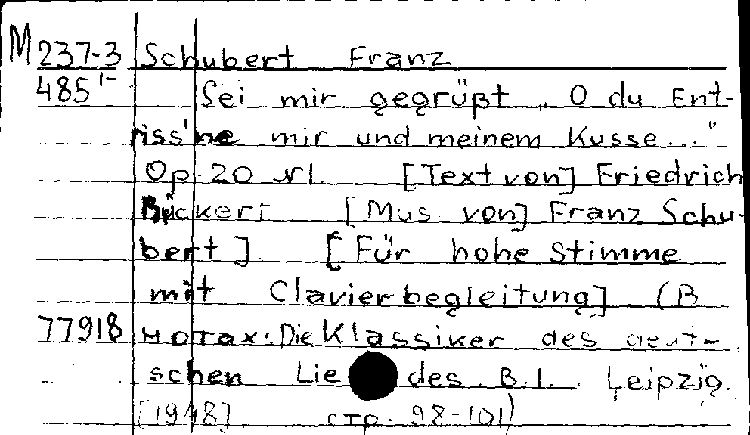 M 237-3 Schubert Franz
485 Sei mir gegrüßt „O du Ent-
riss'ne mir und meinem Kusse..."
Op. 20 №1. [Text von] Friedrich
Rückert [Mus. von] Franz Schu-
bert] [Für hohe Stimme
mit Clavierbegleitung] (В
77918 нотах: Die Klassiker des deut-
schen Liedes. B.1. Leipzig.
[1948] стр. 98-101)